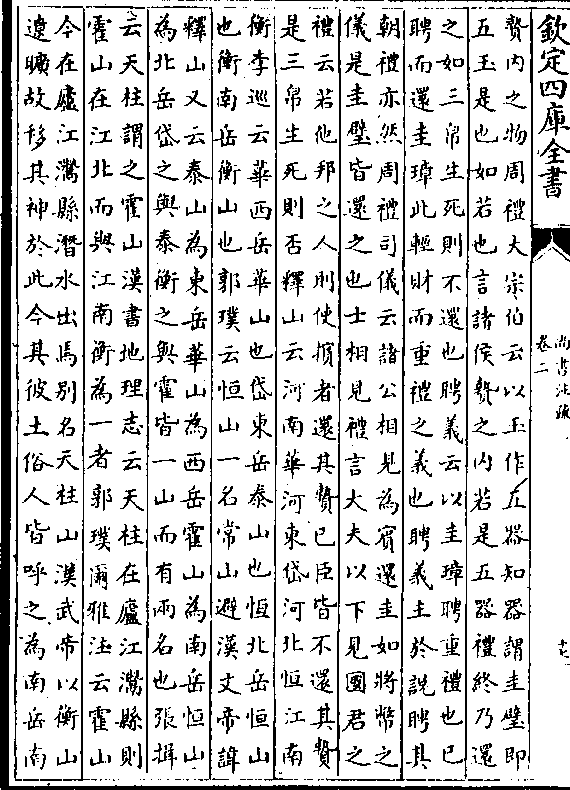 欽定四庫全書
尚書注疏
卷二
贄内之物周禮大宗伯云以玉作五器知器謂圭璧即
五玉是也如若也言諸侯贄之内若是五器禮終乃還
之如三帛生死則不還也聘義云以圭璋聘重禮也已
聘而還圭璋此輕財而重禮之義也聘義主於說聘其
朝禮亦然周禮司儀云諸公相見為賓還圭如將幣之
儀是圭璧皆還之也士相見禮言大夫以下見國君之
禮云若他邦之人則使擯者還其贄已臣皆不還其贄
是三帛生死則否釋山云河南華河東岱河北恒江南
衡李巡云華西岳華山也岱東岳泰山也恒北岳恒山
也衡南岳衡山也郭璞云恒山一名常山避漢文帝諱
釋山又云泰山為東岳華山為西岳霍山為南岳恒山
為北岳岱之與泰衡之與霍皆一山而有兩名也張揖
云天柱謂之霍山漢書地理志云天柱在廬江灊縣則
霍山在江北而與江南衡為一者郭璞爾雅注云霍山
今在廬江灊縣潛水出焉别名天柱山漢武帝以衡山
遼曠故移其神於此今其彼土俗人皆呼之為南岳南